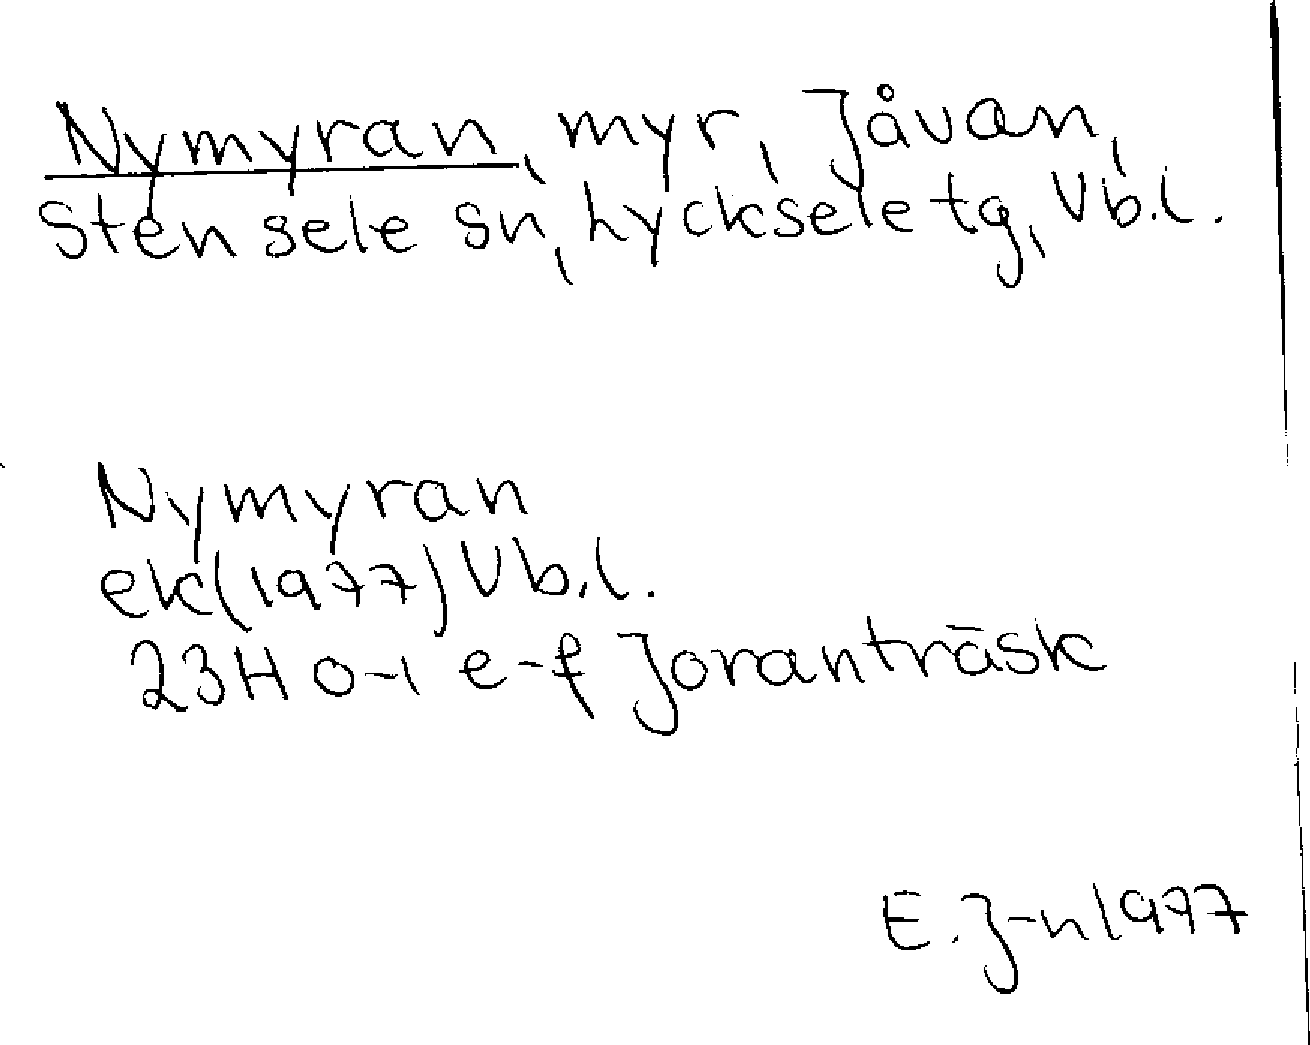 Nymyran, myr, Jåvan,
Stensele sn, Lycksele tg, Vb.l.
Nymyran
ek (1977) Vb.l.
23H 0-1 e-f Joranträsk
E. J-n 1977